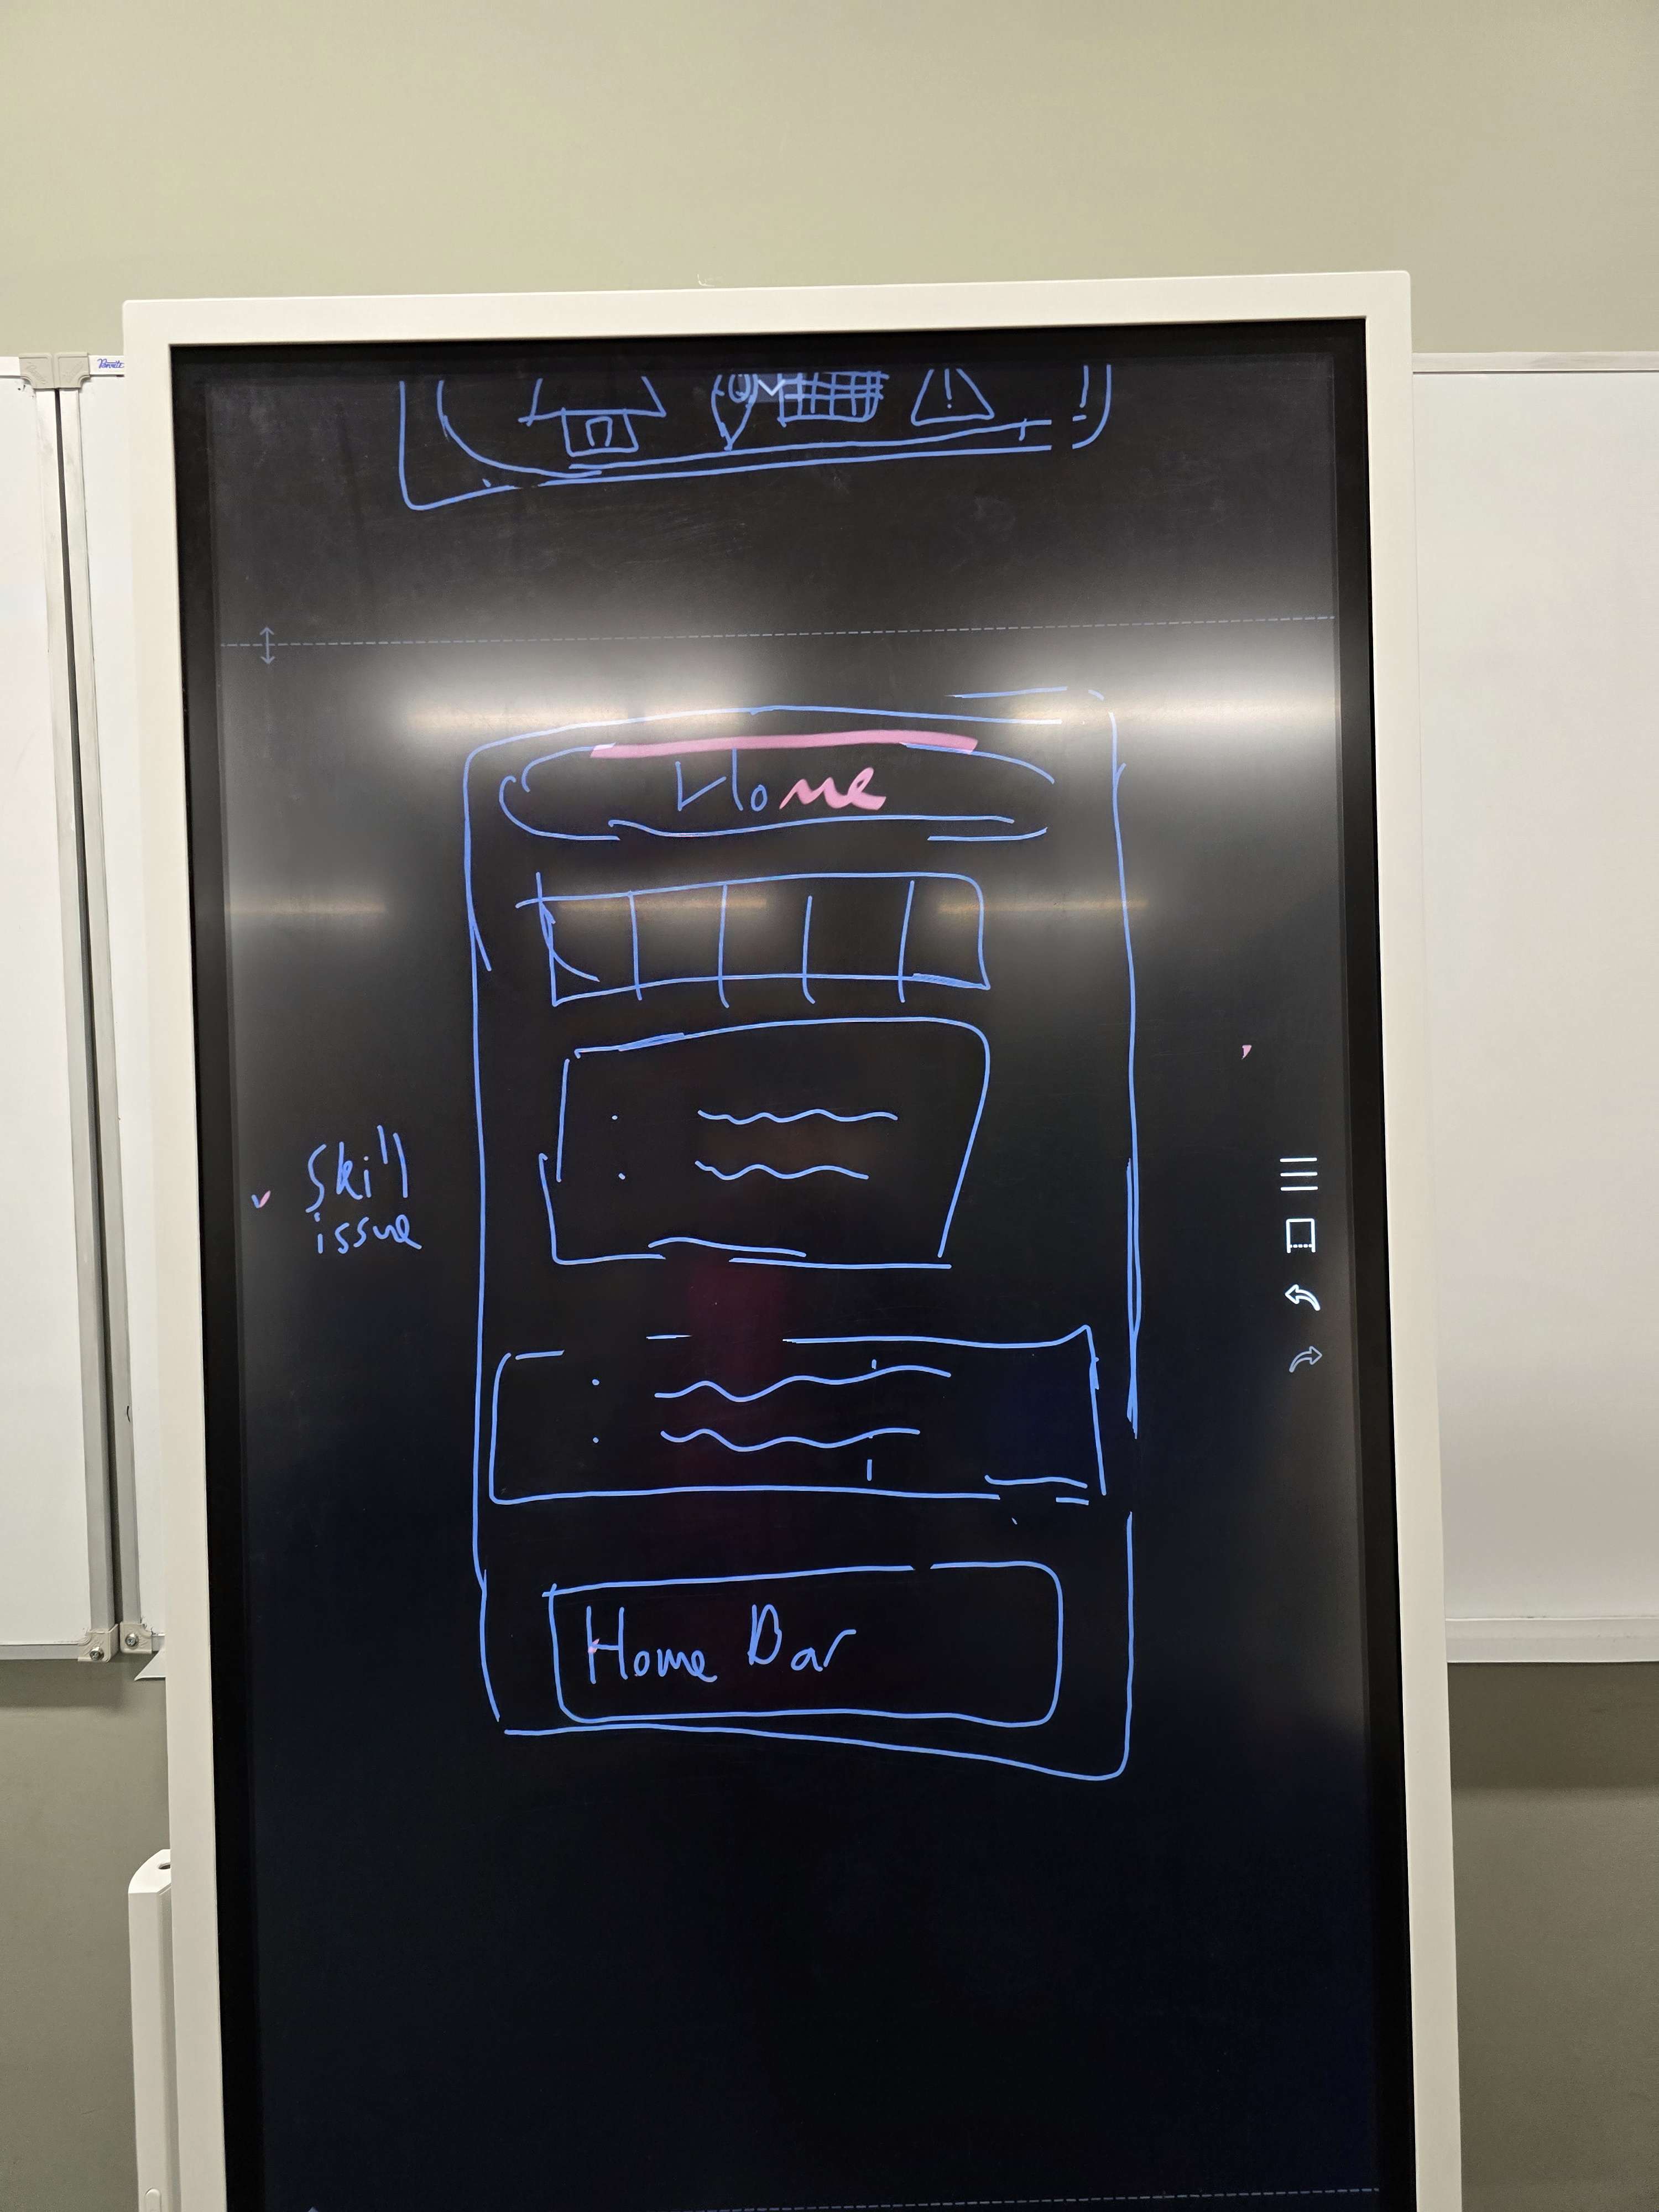 Home
Skill
issue
Home Bar